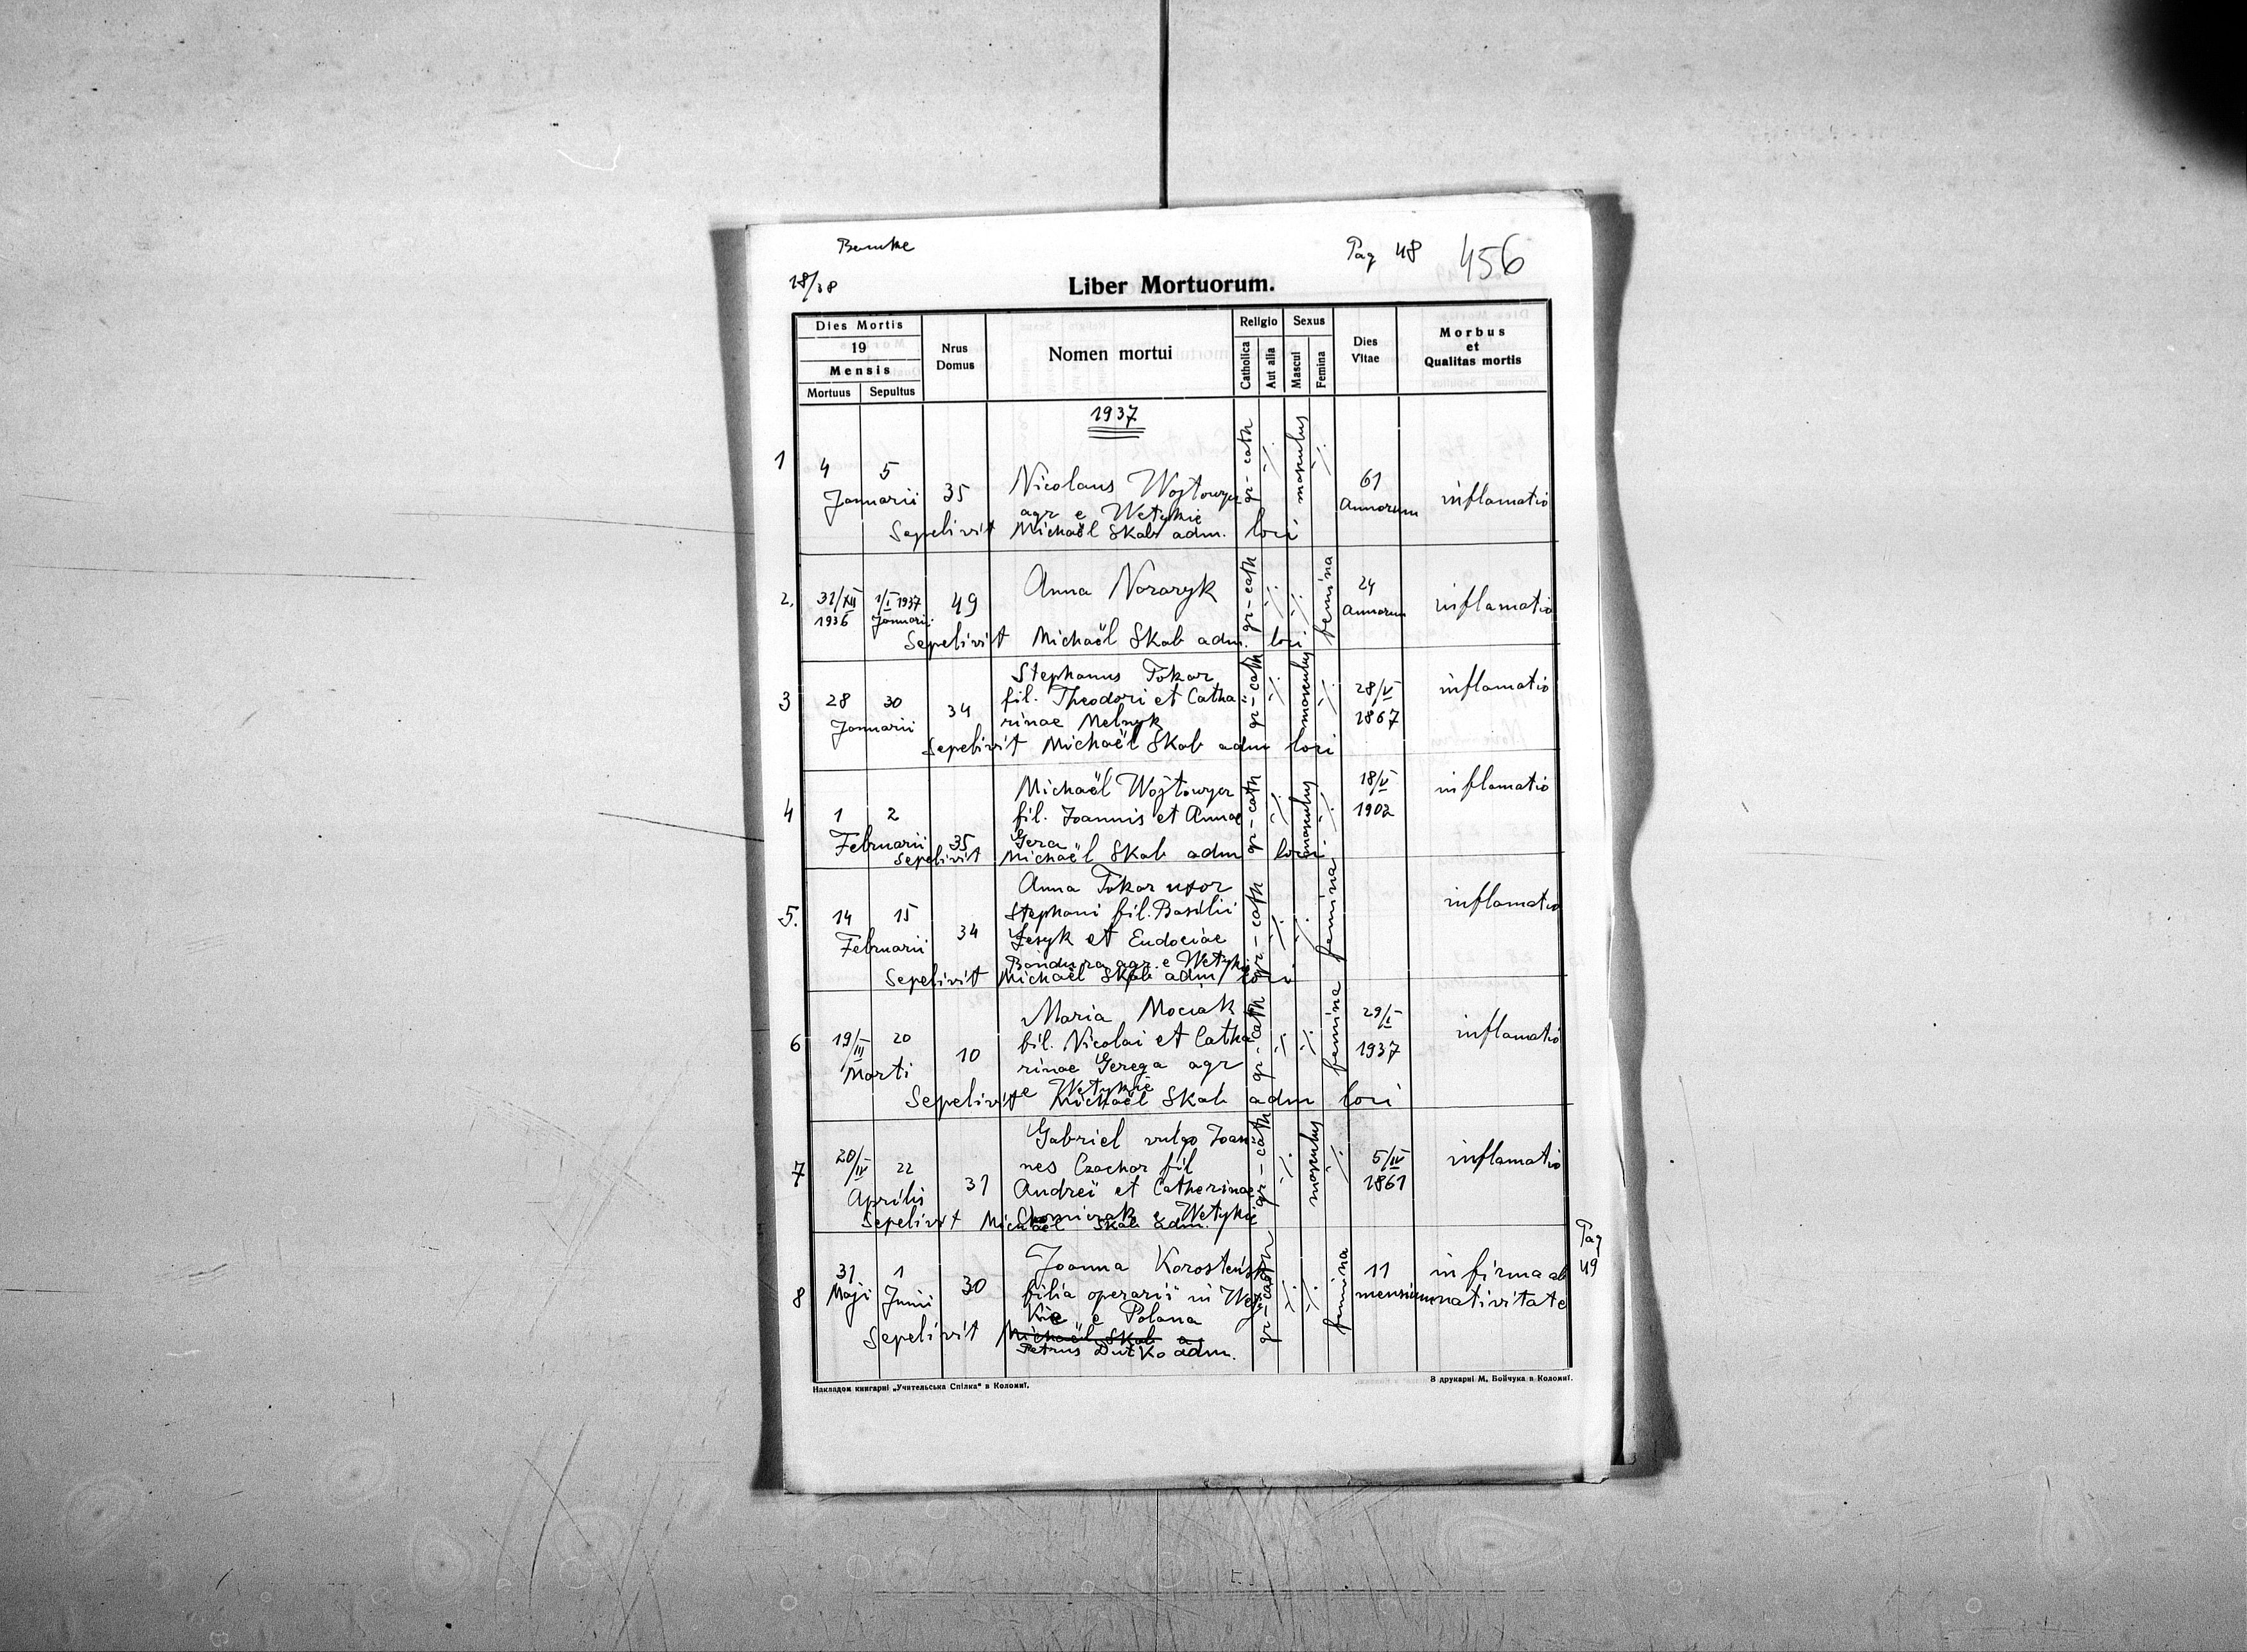 Pag 48 456
18/38
Liber Mortuorum.
Dies Mortis
19
Mensis
Mortuus Sepultus
Nrus Domus
Nomen mortui
Religio
Catholica Aut alia
Sexus
Mascul Femina
Dies Vitae
Morbus
et
Qualitas mortis
1937
1 4 5 Januarii 35 Nicolaus gr-cath masculus 61 Annorum inflamatio
agr e Wetykie
Sepelivit Michaël Skab adm. loci
2. 31/XII 1936 1/I 1937 Januarii 49 Anna gr-cath femina 24 Annorum inflamatio
Sepelivit Michaël Skab adm. loci
3 28 30 Januarii 34 Stephanus Tokar gr-cath masculus 28/V 1867 inflamatio
fil. Theodori et Catha
rinae Melnyk
Sepelivit Michaël Skab adm loci
4 1 2 Februarii 35 Michaël Wojtowycz gr-cath masculus 18/V 1902 inflamatio
fil. Joannis et Annae
Gera
Sepelivit Michaël Skab adm loci
5. 14 15 Februarii 34 Anna Tokar uxor gr-cath femina inflamatio
Stephani fil. Basilii
et Eudociae
Bandura agr. e Wetykie
Sepelivit Michaël Skab adm loci
6 19/III 20 Marti 10 Maria Mociak gr-cath femina 29/I 1937 inflamatio
fil. Nicolai et Catha
rinae Gerega agr
e Wetykie
Sepelivit Michaël Skab adm loci
7 20/IV 22 Aprilis 31 Gabriel vulgo Joan gr-cath masculus 5/IV 1861 inflamatio
nes Czachor fil
Andreï et Catherinae
e Wetykie
Sepelivit Michaël Skab adm.
8 31 Maji 1 Junii 30 Joanna gr-cath femina 11 mensium infirma ab
nativitate
filia operarii in Wety
kie e Polana
Sepelivit Michaël Skab a
Petrus Dutko adm.
Pag
49
Накладом книгарні „Учительська Спілка" в Коломиї.
В друкарні М. Бойчука в Коломиї.